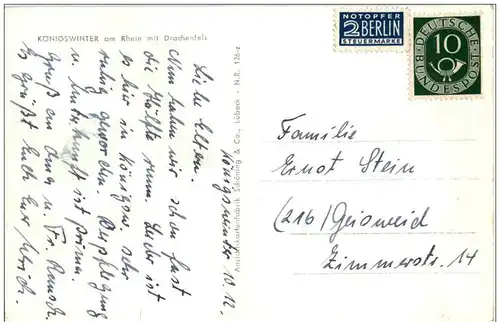 KÖNIGSWINTER am Rhein mit Drachenfels
NOTOPFER
2 BERLIN
STEUERMARKE
DEUTSCHE
10
BUNDESPOST
Königswinter, 10.12.
Liebe Eltern.
Nun haben wir schon fast
die Hälfte rum. Leider ist
es hier in Königsw. sehr
ruhig geworden. Verpflegung
u. Unterkunft ist prima.
Gruß an Oma u. Fr.
Es grüßt Euch Euer
Ansichtskartenfabrik Schöning & Co., Lübeck - N.R. 126
Familie
Ernst Stein
(21b) Geisweid
Zimmerstr. 14